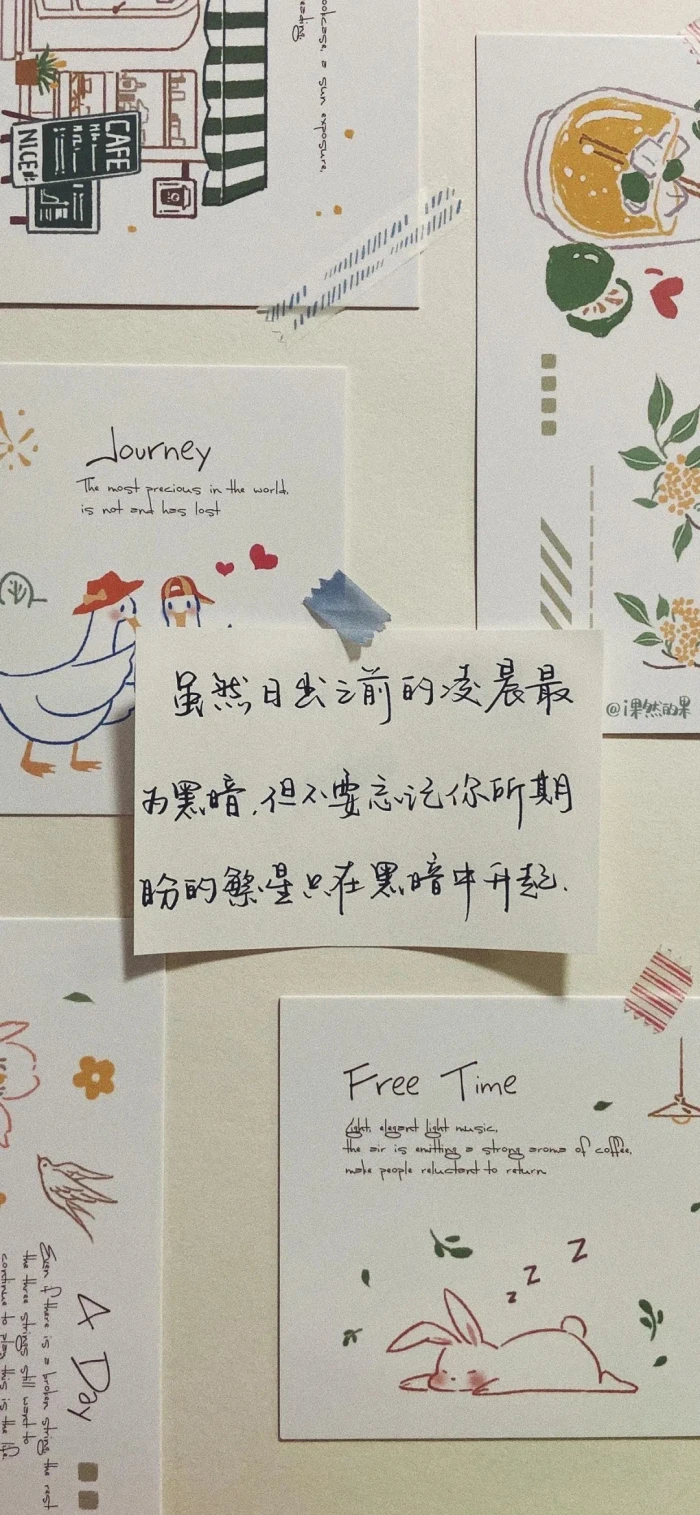 ookcase, a sun exposure,
reading
CAFE
NICE
Journey
The most precious in the world,
is not and has lost
虽然日出之前的凌晨最
为黑暗,但不要忘记你所期
盼的繁星只在黑暗中升起.
@i果然的果
Free Time
Light, elegant light music,
the air is emitting a strong aroma of coffee,
make people reluctant to return
A Day
Even if there is a broken string the rest
the three strings still want to
continue to play this is the life.